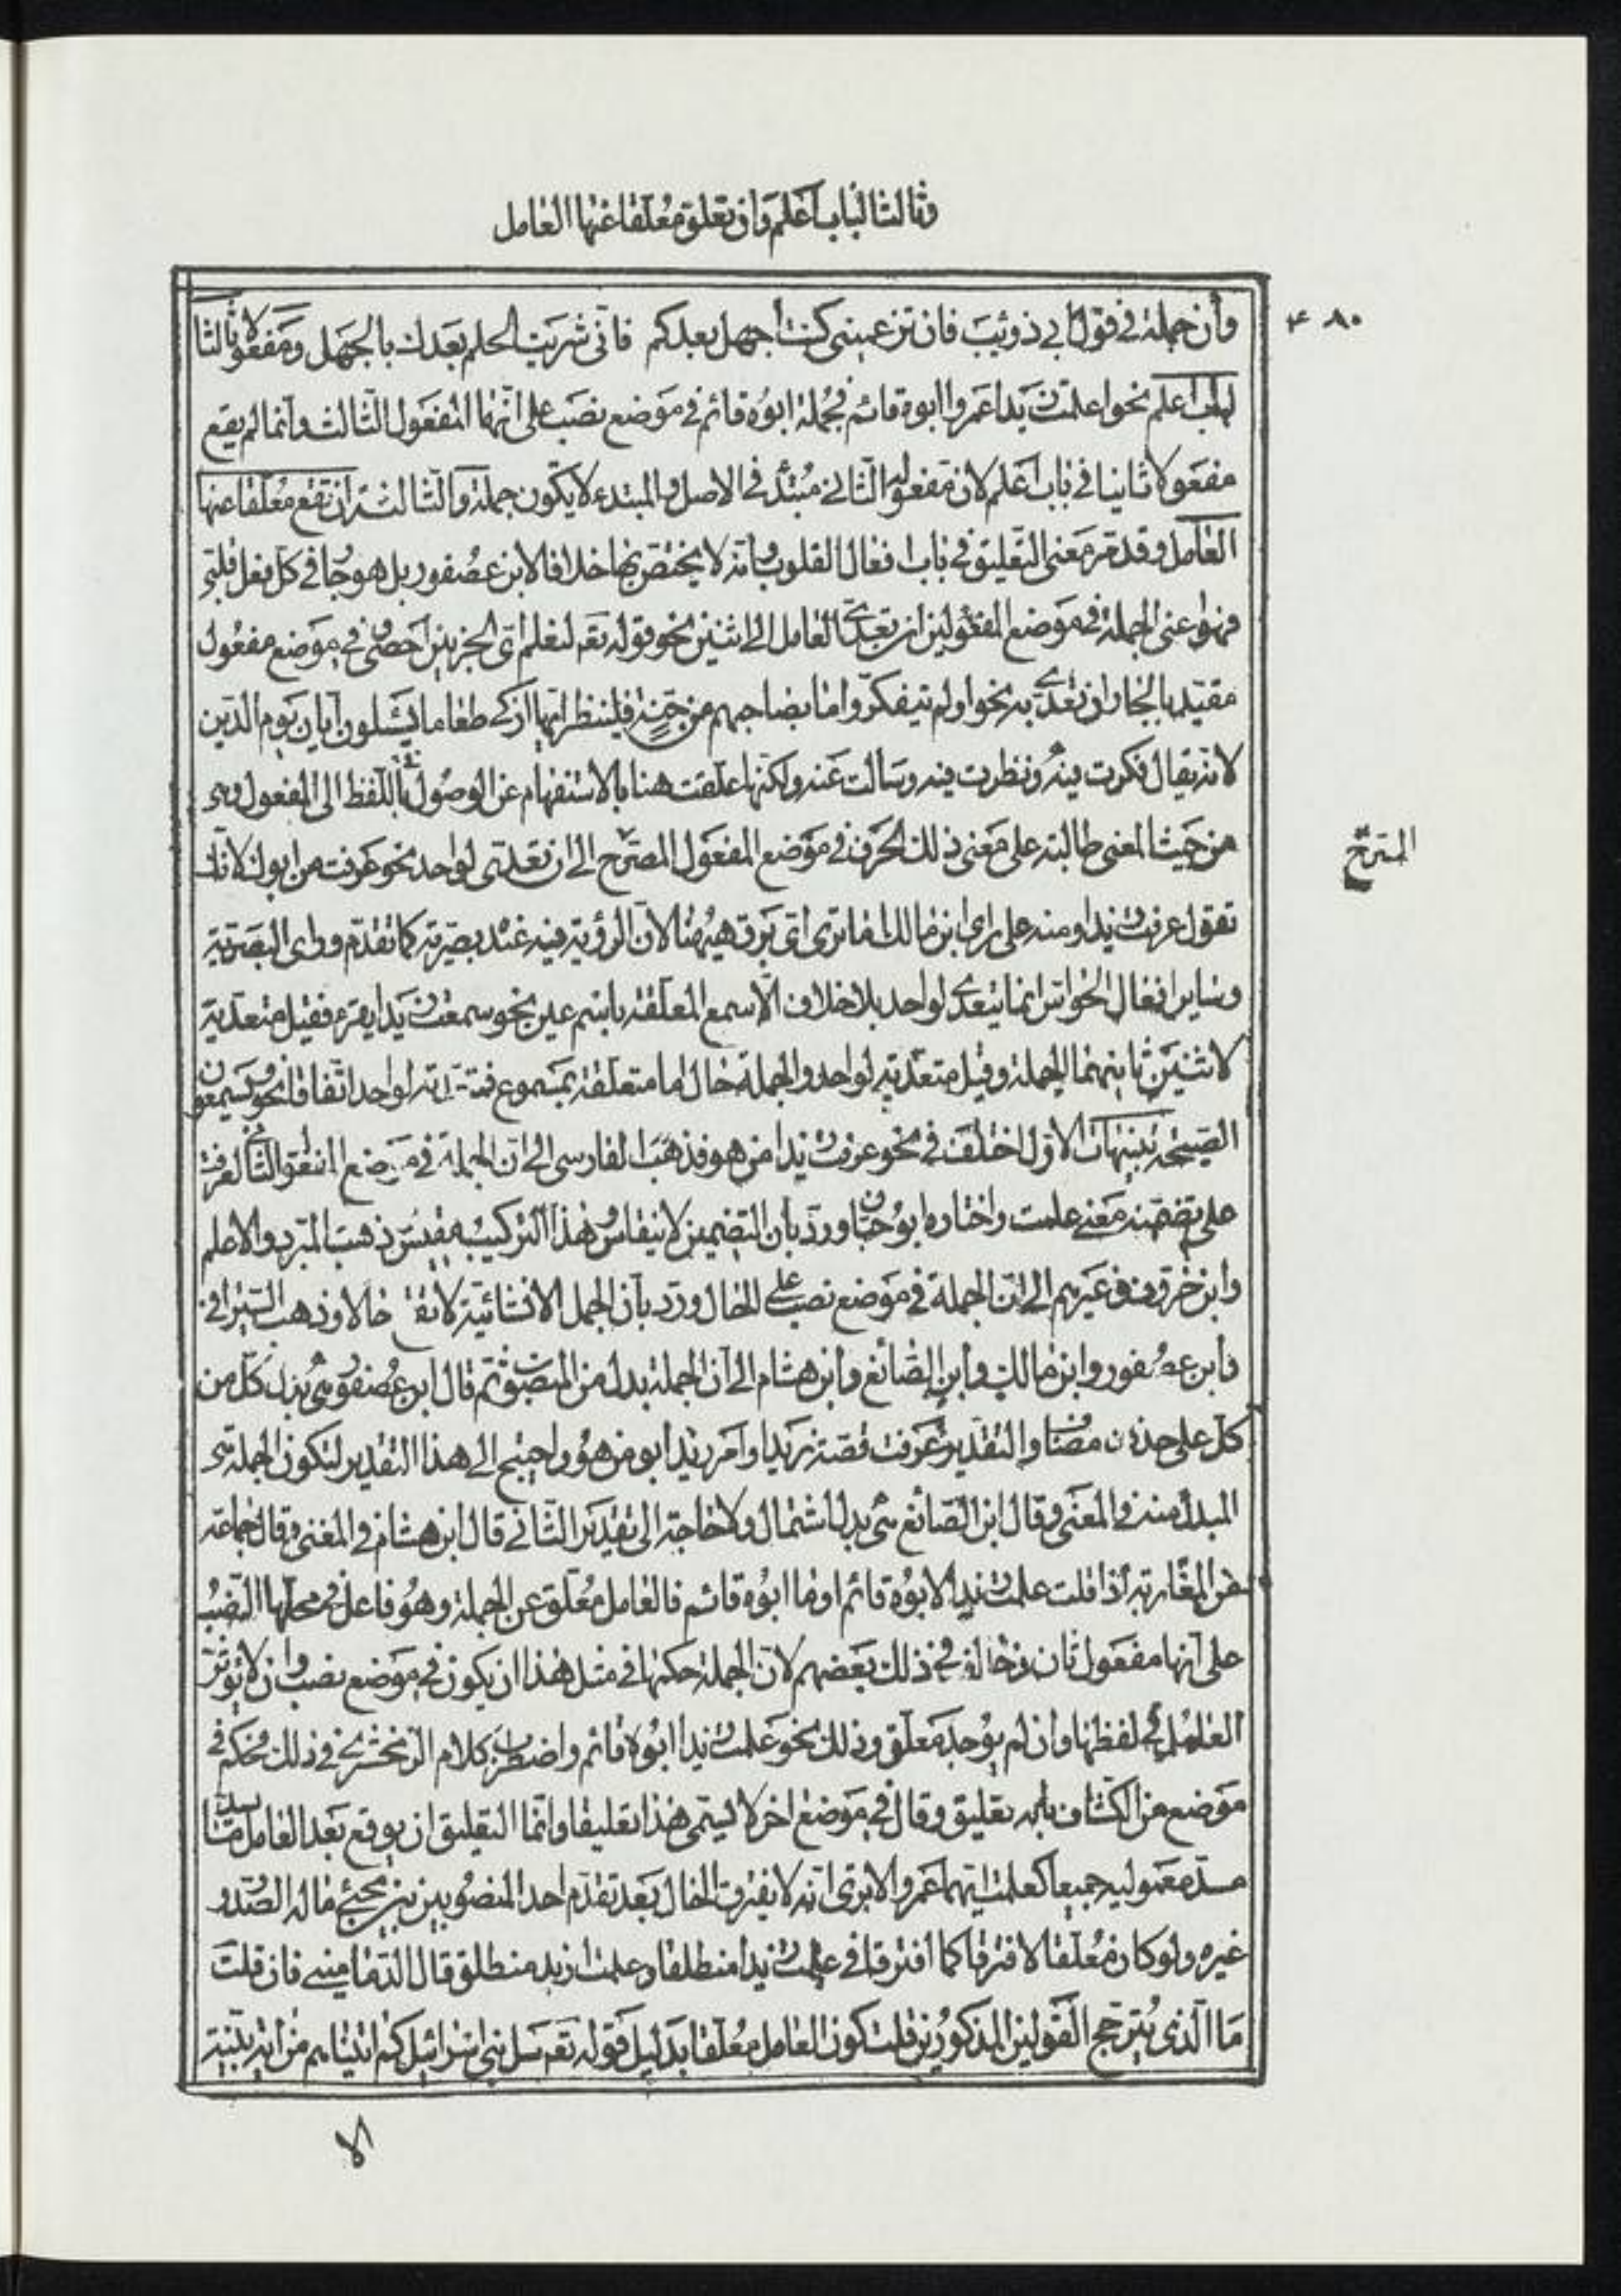 وثالثا لباب أعلم وان تعلق معلقا عنها العامل
٤٨٠
وأن جملة في قول ابي ذوئيب فان تزعميني كنت أجهل بعدكم فاني شريت الحلم بعدك بالجهل ومفعولا ثالثا
لباب اعلم نحو اعلمت زيدا عمروا ابوه قائم فجملة ابوه قائم في موضع نصب على انها المفعول الثالث وانما لم يقع
مفعولا ثانيا في باب اعلم لان مفعوله الثاني مبتدأ في الاصل والمبتدء لا يكون جملة والثالثة ان تقع معلقا عنها
العامل وقد مر معنى التعليق في باب افعال القلوب وانه لا يختص بها خلافا لابن عصفور بل هو جار في كل فعل قلبي
فهوا عنى الجملة في موضع المفعولين ان تعدى العامل الى اثنين نحو قوله تعه لنعلم اى الحزبين احصى وفي موضع مفعول
مقيد بالجار ان تعدى به نحو اولم يتفكروا ما بصاحبهم من جنة فلينظر ايها ازكى طعاما يسئلون ايان يوم الدين
لانه يقال فكرت فيه ونظرت فيه وسالت عنه ولكنها علقت هنا بالاستفهام عن الوصول باللفظ الى المفعول وهى
من حيث المعنى طالبة على معنى ذلك الحرف في موضع المفعول المصرح الى ان تعدى لواحد نحو عرفت من ابوك لانك
المسرح
تقول عرفت زيدا ومنه على راى ابن مالك اما ترى اى برق هيهنا لان الرؤية فيه عنده بصرية كما تقدم وراى البصرية
وساير افعال الحواس انما يتعدى لواحد بلا خلاف الا سمع المعلقة باسم عين نحو سمعت زيدا يقرء فقيل متعدية
لاثنين ثانيهما الجملة وقيل متعدية لواحد والجملة حال اما متعلقة بمسموع فمتعدية لواحد اتفاقا نحو يسمعون
الصيحة تنبيهات الاول اختلف في نحو عرفت زيدا من هو فذهب الفارسى الى ان الجملة في موضع المفعول الثانى لعرفت
على تضمنه معنى علمت واختاره ابو حيان ورد بان التضمين لا ينقاس وهذا التركيب مقيس وذهب المبرد والاعلم
وابن خروف وغيرهم الى ان الجملة في موضع نصب على الحال ورد بان الجمل الانشائية لا تقع حالا وذهب السيرافى
وابن عصفور وابن مالك وابن الصائغ وابن هشام الى ان الجملة بدل من المنصوب ثم قال ابن عصفور هى بدل كل من
كل على حذف مضاف والتقدير عرفت قصة زيدا وامر زيد ابو من هو واحتيج الى هذا التقدير لتكون الجملة هى
المبدل منه في المعنى وقال ابن الصائغ هى بدل اشتمال ولا حاجة الى تقدير الثانى قال ابن هشام في المغنى وقال جماعة
من المغاربة اذا قلت علمت زيدا لابوه قائم او ما ابوه قائم فالعامل معلق عن الجملة وهو فاعل في محلها النصب
على انها مفعول ثان وخالف في ذلك بعضهم لان الجملة حكمها في مثل هذا ان يكون في موضع نصب وان لا يؤثر
العامل في لفظها وان لم يوجد معلق وذلك نحو علمت زيدا ابوه قائم واضطرب كلام الزمخشرى في ذلك فحكم في
موضع من الكشاف بانه تعليق وقال في موضع اخر لا يسمى هذا تعليقا وانما التعليق ان يوقع بعد العامل ما يسد
مسد معموليه جميعا كعلمت ايهما عمرو الا ترى انه لا يفترق الحال بعد تقدم احد المنصوبين بين مجئ ماله الصدر و
غيره ولو كان معلقا لافترقا كما افترقا في علمت زيدا منطلقا وعلمت ازيد منطلق قال الدمامينى فان قلت
ما الذى يترجح القولين المذكورين قلت كون العامل معلقا بدليل قوله تعه سل بنى اسرائيل كم اتيناهم من اية بينة
الا